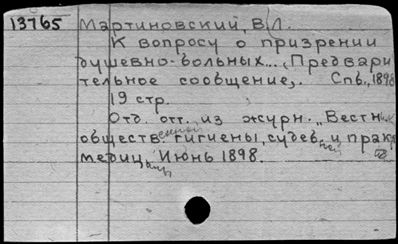 13765 Мартиновский, В.Л.
К вопросу о призрении
душевно-больных... (Предвари
тельное сообщение,. Спб., 1898
19 стр.
Отд. отт. из журн. „Вестник
обществ.енной гигиены, судеб.ной и прак
медиц Июнь 1898.